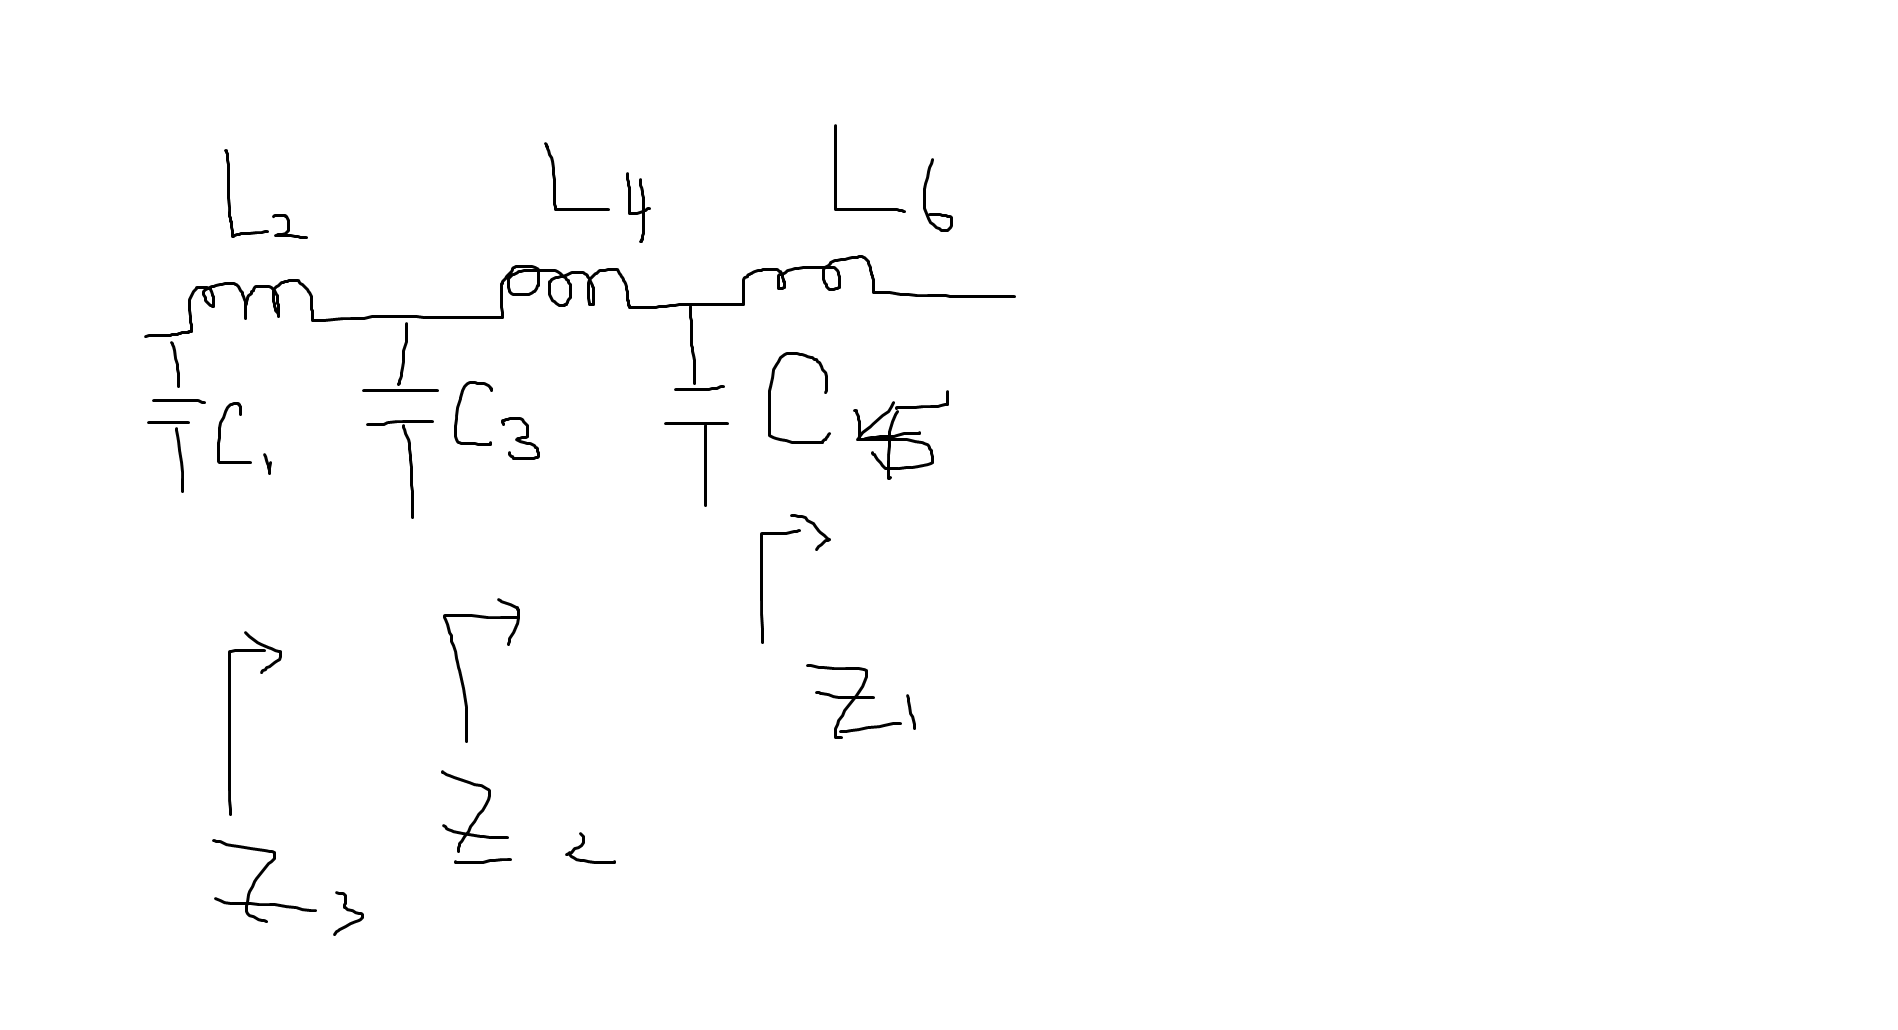 L2 L4 L6
C1 C3 C5
Z1
Z2
Z3